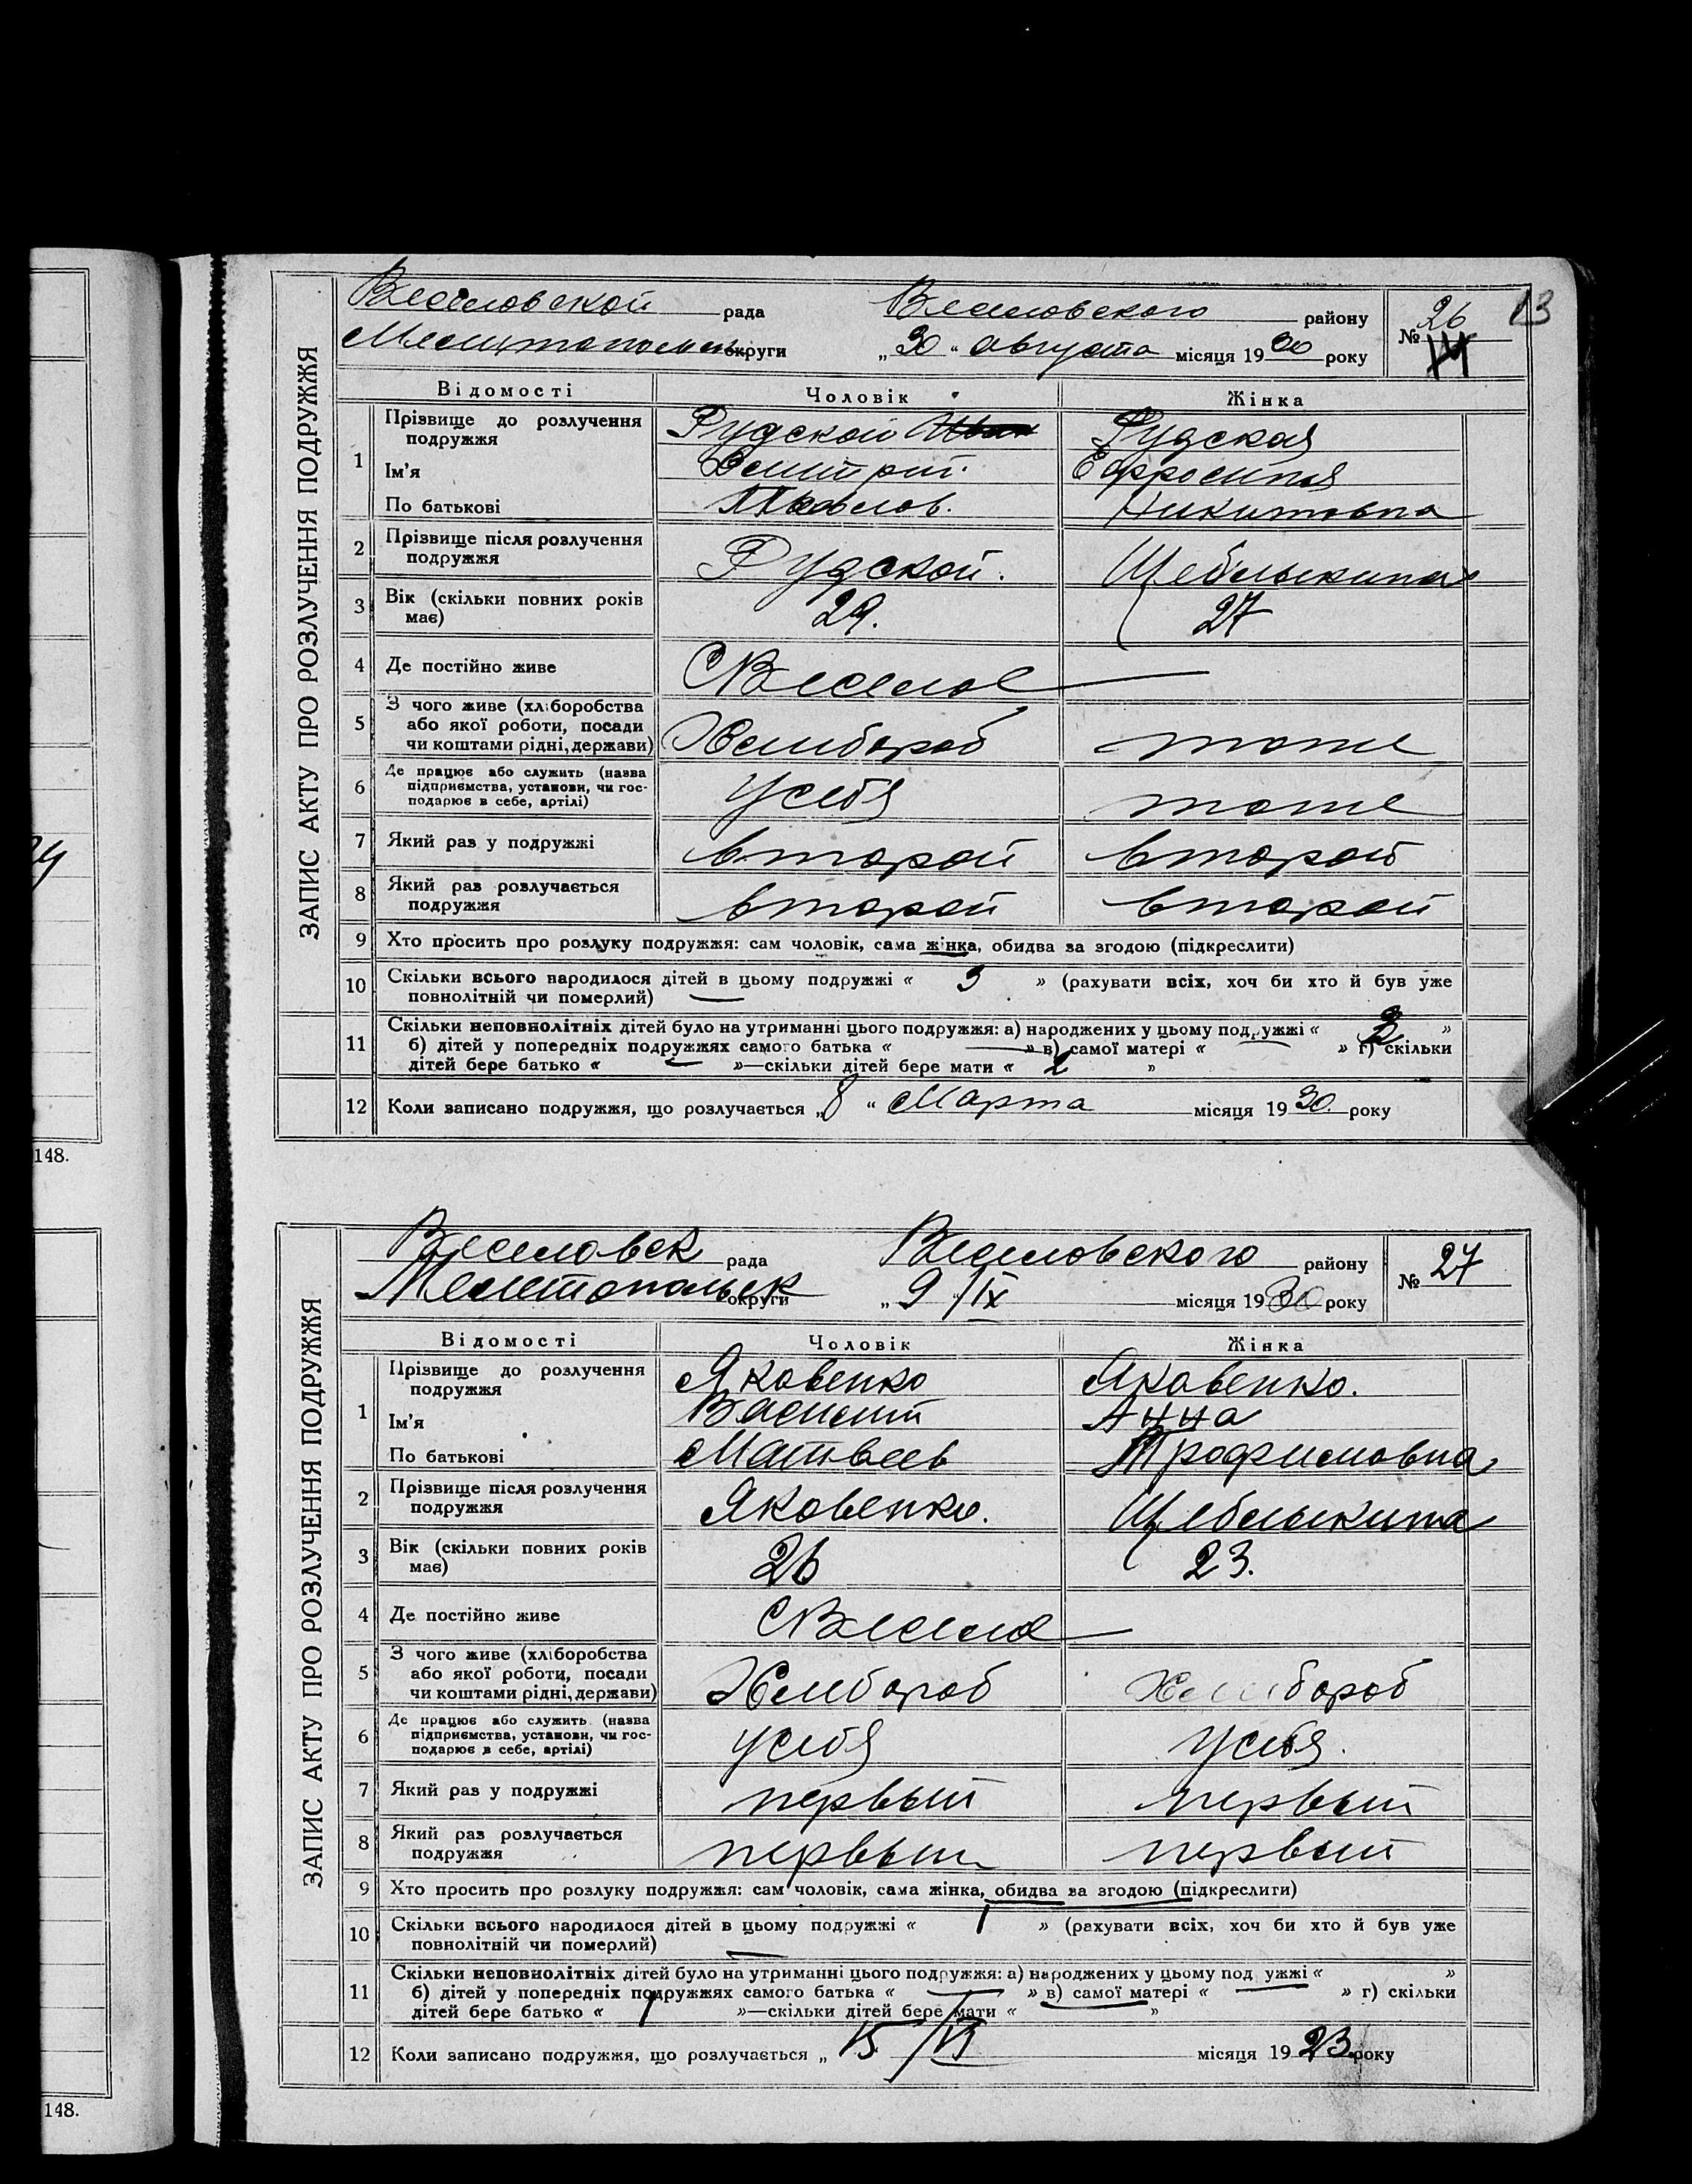 13
ЗАПИС АКТУ ПРО РОЗЛУЧЕННЯ ПОДРУЖЖЯ
Веселовской рада Веселовского району № 26
округи „30“ августа місяця 1930 року 14
Відомості Чоловік Жінка
1 Прізвище до розлучення подружжя Рудской Иван Рудская
Ім'я Дмитрий. Ефросиния
По батькові Павлов. Никитовна
2 Прізвище після розлучення подружжя Рудской. Щеблыкина
3 Вік (скільки повних років має) 29. 27
4 Де постійно живе С Веселое —
5 З чого живе (хліборобства або якої роботи, посади чи коштами рідні, держави) Хлебороб тоже
6 Де працює або служить (назва підприємства, установи, чи господарює в себе, артілі) У себя тоже
7 Який раз у подружжі второй второй
8 Який раз розлучається подружжя второй второй
9 Хто просить про розлуку подружжя: сам чоловік, сама жінка, обидва за згодою (підкреслити)
10 Скільки всього народилося дітей в цьому подружжі « 3 » (рахувати всіх, хоч би хто й був уже
повнолітній чи померлий) —
11 Скільки неповнолітніх дітей було на утриманні цього подружжя: а) народжених у цьому подружжі « »
б) дітей у попередніх подружжях самого батька « — » в) самої матері « — » г) скільки
дітей бере батько « — »—скільки дітей бере мати « 2 »
12 Коли записано подружжя, що розлучається „8“ Марта місяця 1930 року
148.
ЗАПИС АКТУ ПРО РОЗЛУЧЕННЯ ПОДРУЖЖЯ
Веселовск рада Веселовского району № 27
Мелитопольск округи „9“/IX місяця 1930 року
Відомості Чоловік Жінка
1 Прізвище до розлучення подружжя Яковенко Яковенко.
Ім'я Василий Анна
По батькові Матвеев Трофимовна
2 Прізвище після розлучення подружжя Яковенко. Щеблыкина
3 Вік (скільки повних років має) 26 23.
4 Де постійно живе С Веселое —
5 З чого живе (хліборобства або якої роботи, посади чи коштами рідні, держави) Хлебороб Хлебороб
6 Де працює або служить (назва підприємства, установи, чи господарює в себе, артілі) У себя У себя.
7 Який раз у подружжі первый первый
8 Який раз розлучається подружжя первый первый
9 Хто просить про розлуку подружжя: сам чоловік, сама жінка, обидва за згодою (підкреслити)
10 Скільки всього народилося дітей в цьому подружжі « 1 » (рахувати всіх, хоч би хто й був уже
повнолітній чи померлий) —
11 Скільки неповнолітніх дітей було на утриманні цього подружжя: а) народжених у цьому подружжі « »
б) дітей у попередніх подружжях самого батька « — » в) самої матері « — » г) скільки
дітей бере батько « 1 »—скільки дітей бере мати « »
12 Коли записано подружжя, що розлучається „15 місяця 1923. року
148.